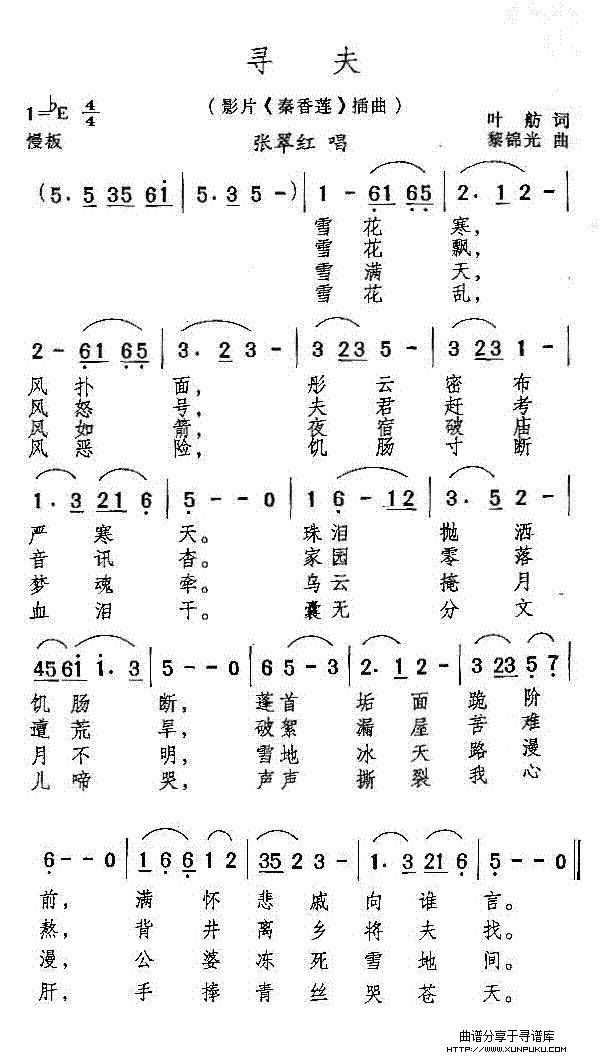 寻 夫
(影片《秦香莲》插曲)
1=♭E 4/4
慢板
张翠红 唱
叶 舫 词
黎锦光 曲
(5. 5 35 61 | 5. 3 5 -) | 1 - 61 65 | 2. 1 2 - |
雪 花 寒,
雪 花 飘,
雪 满 天,
雪 花 乱,
2 - 61 65 | 3. 2 3 - | 3 23 5 - | 3 23 1 - |
风 扑 面, 彤 云 密 布
风 怒 号, 夫 君 赶 考
风 如 箭, 夜 宿 破 庙
风 恶 险, 饥 肠 寸 断
1. 3 21 6 | 5 - - 0 | 1 6 - 12 | 3. 5 2 - |
严 寒 天。 珠 泪 抛 洒
音 讯 杳。 家 园 零 落
梦 魂 牵。 乌 云 掩 月
血 泪 干。 囊 无 分 文
4561 1. 3 | 5 - - 0 | 6 5 - 3 | 2. 1 2 - | 3 23 5 7 |
饥 肠 断, 蓬 首 垢 面 跪 阶
遭 荒 旱, 破 絮 漏 屋 苦 难
月 不 明, 雪 地 冰 天 路 漫
儿 啼 哭, 声 声 撕 裂 我 心
6 - - 0 | 1 6 6 1 2 | 35 2 3 - | 1. 3 21 6 | 5 - - 0 ‖
前, 满 怀 悲 戚 向 谁 言。
熬, 背 井 离 乡 将 夫 找。
漫, 公 婆 冻 死 雪 地 间。
肝, 手 捧 青 丝 哭 苍 天。
曲谱分享于寻谱库
HTTP://WWW.XUNPUKU.COM